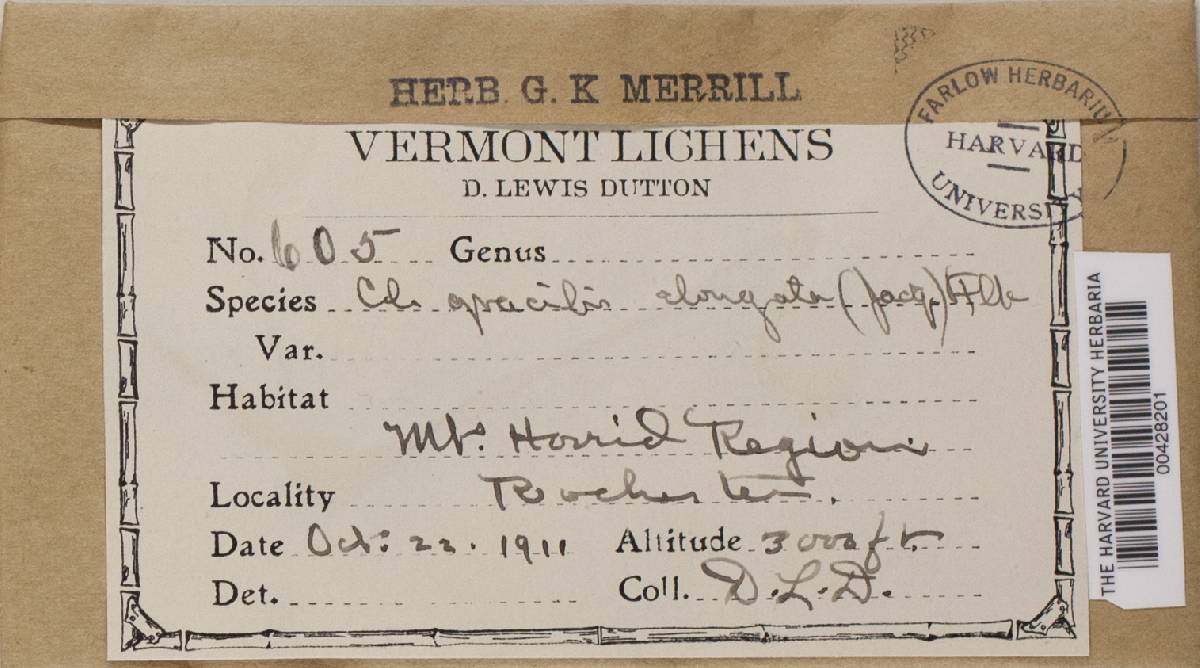 HERB. G. K MERRILL
FARLOW HERBARIUM
HARVARD
UNIVERSITY
VERMONT LICHENS
D. LEWIS DUTTON
No. 605 Genus
Species Cl. gracilis elongata (Jacq.) Flk
Var.
Habitat
Mt. Horrid Region
Locality Rochester.
Date Oct. 22. 1911 Altitude 3000 ft.
Det. Coll. D. L. D.
THE HARVARD UNIVERSITY HERBARIA
00428201